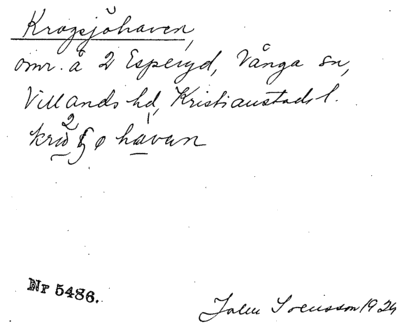 Krogsjöhaven,
omr. å 2 Esperyd, Vånga sn,
Villands hd, Kristianstads l.
Nr 5486.
John Svensson 1926